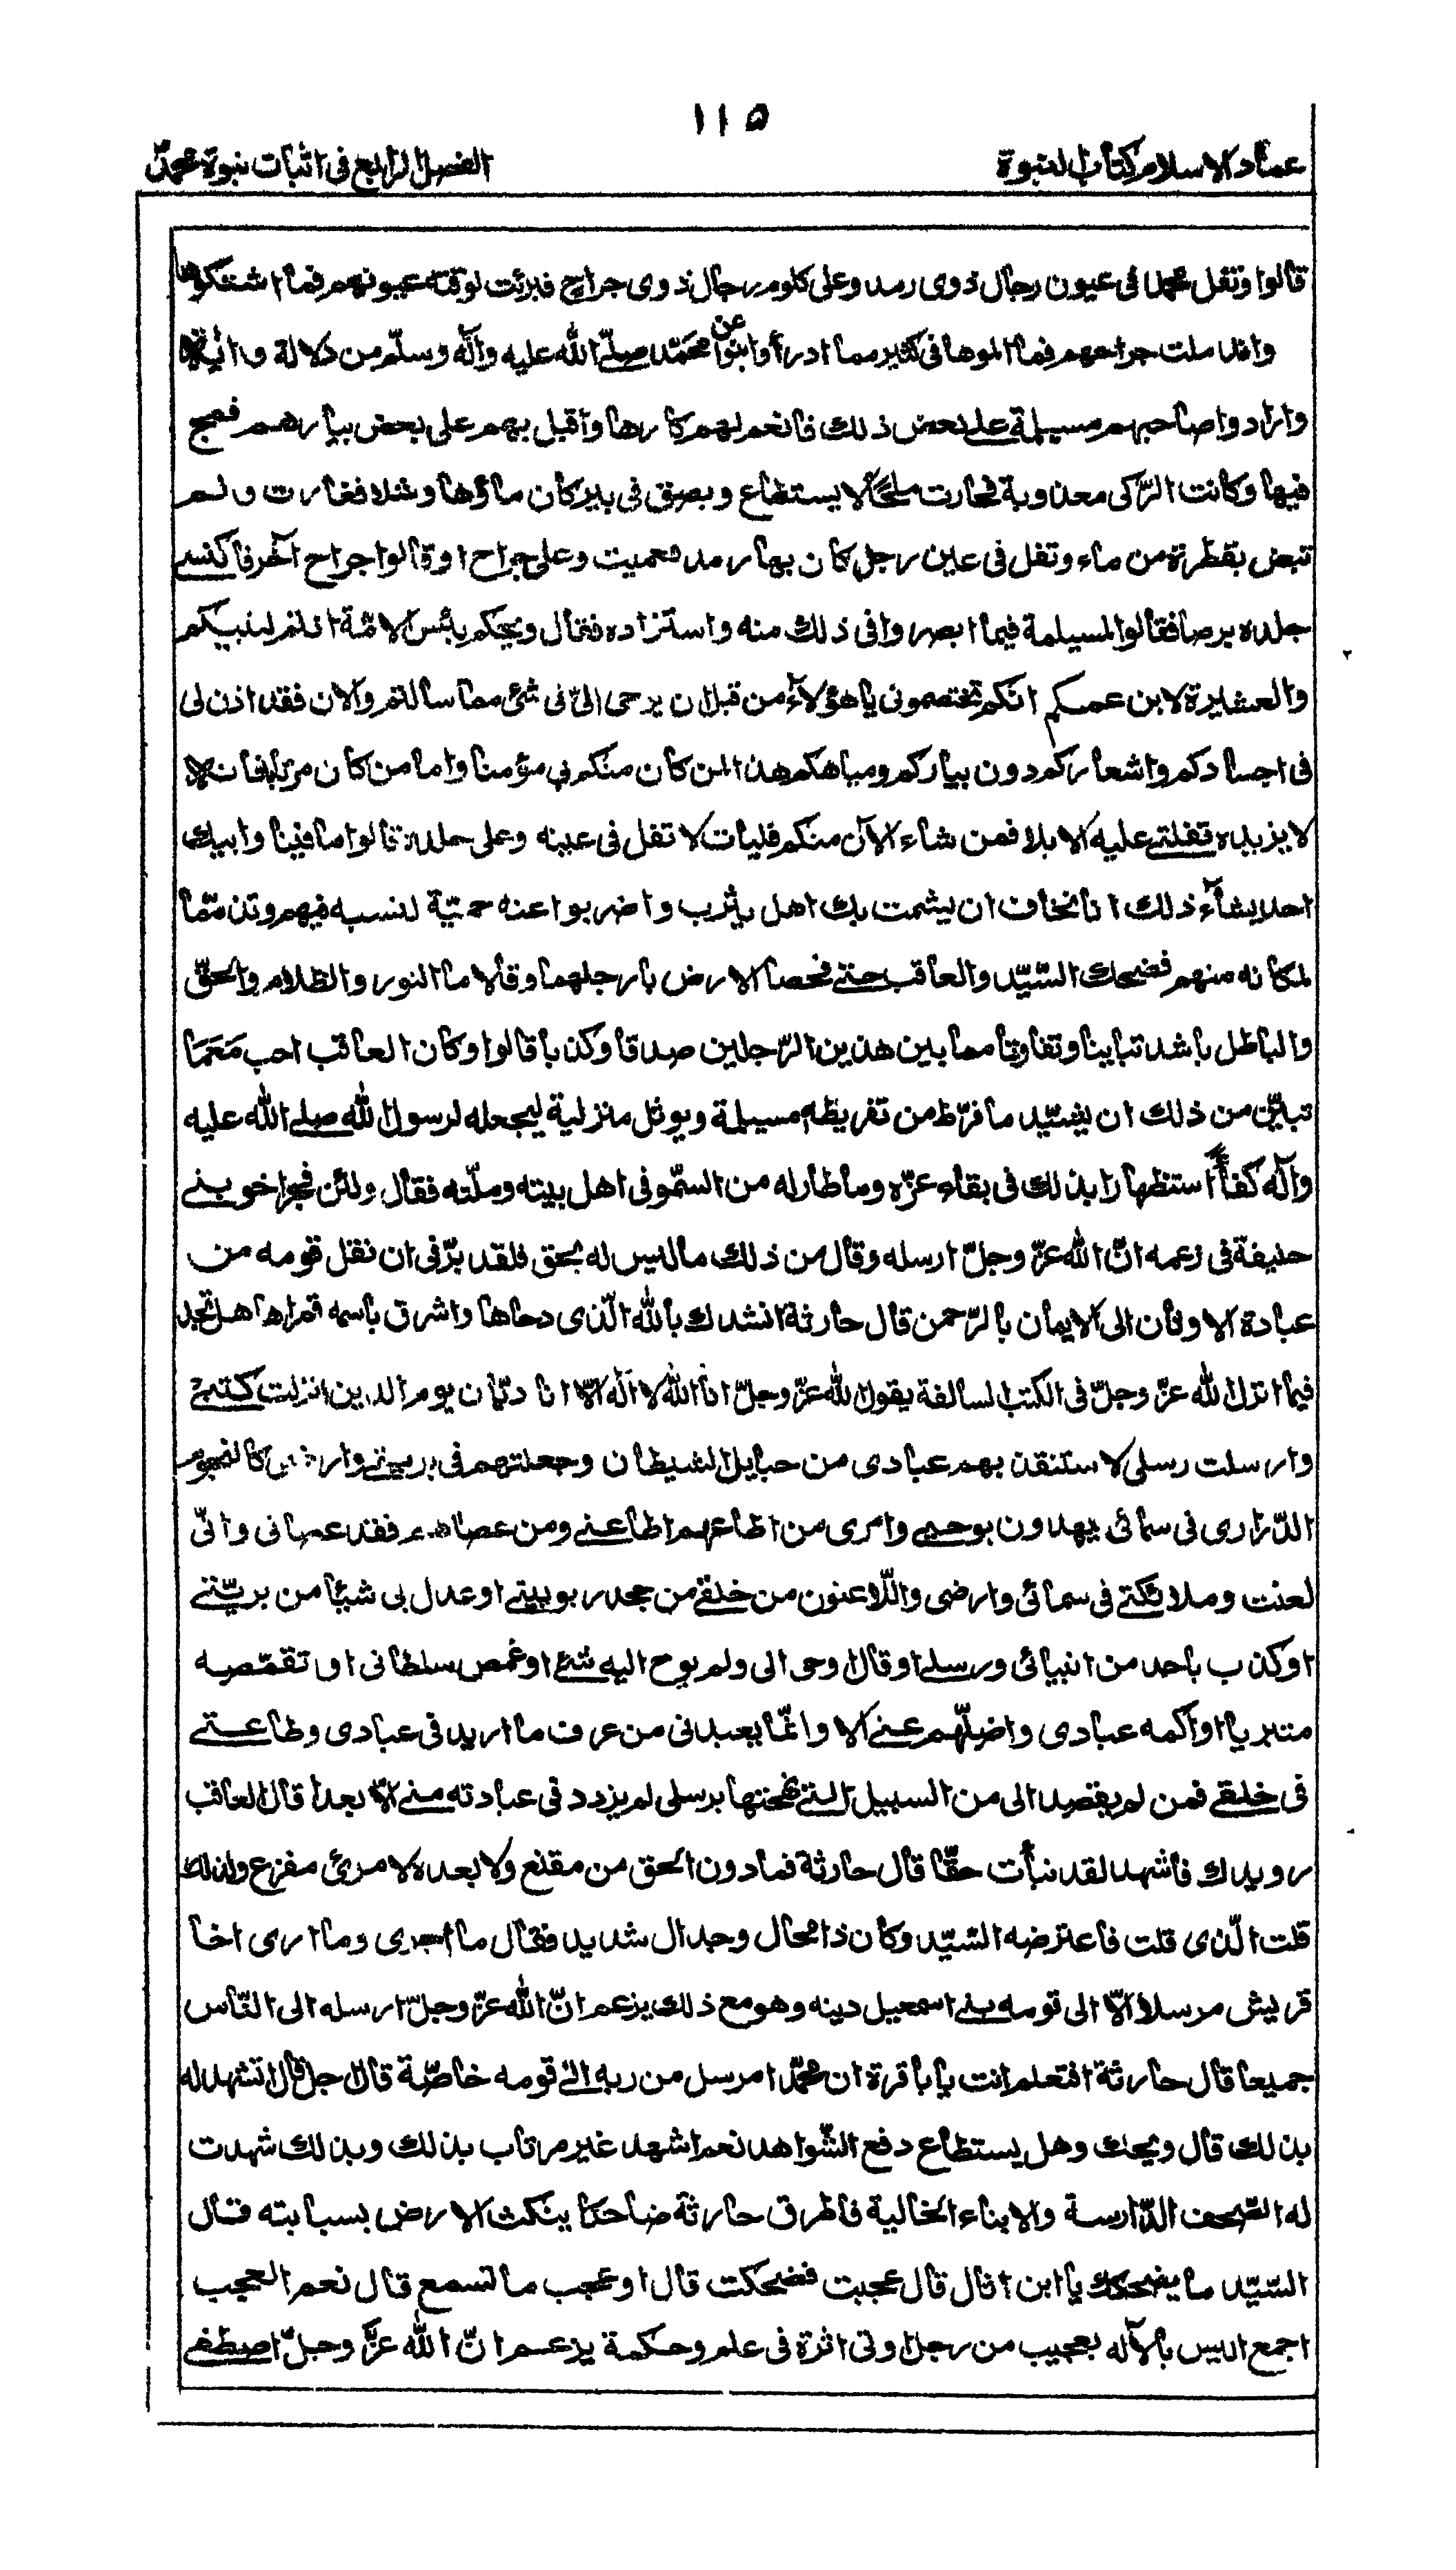 ١١٥
عماد الاسلام كتاب النبوة
الفصل الرابع فى اثبات نبوة محمد
قالوا وتفل محمدا فى عيون رجال ذوى رمد وعلى كلوم رجال ذوى جراح فبرئت لوقته عيونهم فما اشتكوها
واندملت جراحهم فما الموها فى كثير مما ادرأوا وانبوا عن محمد صلى الله عليه وآله وسلم من دلالة و
وارادوا صاحبهم مسيلمة على بعض ذلك فانعم لهم كارها واقبل بهم على بعض بيارهم فمج
فيها وكانت الركى معذوبة فحارت ملحًا لا يستطاع وبصق فى بير كان ماؤها وشلا فغارت ولم
تبض بقطرة من ماء وتفل فى عين رجل كان بها رمد فعميت وعلى جراح اوقالوا جراح آخر فاكتسى
جلده برصا فقالوا لمسيلمة فيما ابصروا فى ذلك منه واستزاده فقال ويحكم بئس الامّة انتم لنبيكم
والعشيرة لابن عمكم انكم تختصمونى يا هؤلاء من قبل ان يوحى الىّ فى شئ مما سالتم والآن فقد اذن لى
فى اجسادكم واشعاركم دون بياركم ومياهكم هذا لمن كان منكم بى مؤمنا واما من كان مرتابا فانه
لا يزيده تفلتى عليه الا بلا فمن شاء الآن منكم فليات لا تفل فى عينه وعلى جلده قالوا ما فينا وابيك
احد يشاء ذلك انا نخاف ان يشمت بك اهل يثرب واضربوا عنه حميّة لنسبه فيهم وتذمّما
لمكانه منهم فضحك السّيّد والعاقب حتى فحصا الارض بارجلهما وقالا ما النور والظلام والحقّ
والباطل باشد تباينا وتفاوتا مما بين هذين الرّجلين صدقا وكذبا قالوا وكان العاقب احب مَعَمَا
تبيّن من ذلك ان يشيّد ما فرّط من تفريظه مسيلمة ويوثل منزلية ليجعله لرسول الله صلى الله عليه
وآله كفأً استظهارا بذلك فى بقاء عزّه وما طار له من السّمو فى اهل بيته وملّته فقال ولئن فجر اخو بنى
حنيفة فى زعمه انّ الله عزّ وجلّ ارسله وقال من ذلك ما ليس له بحق فلقد برّ فى ان نقل قومه من
عبادة الاوثان الى الايمان بالرّحمن قال حارثة انشدك بالله الّذى دحاها واشرق باسمه قمراها هل تجد
فيما انزل الله عزّ وجلّ فى الكتب السالفة يقول الله عزّ وجلّ انا الله لا اله الّا انا ديّان يوم الدين انزلت كتبى
وارسلت رسلى لاستنقذ بهم عبادى من حبايل الشيطان وجعلتهم فى بريتى وارضى كالنجوم
الدّرارى فى سمائى يهدون بوحيى وامرى من اطاعهم اطاعنى ومن عصاهم فقد عصانى وانّى
لعنت وملائكتى فى سمائى وارضى واللّاعنون من خلقى من جحد ربوبيتى او عدل بى شيئا من بريّتى
او كذب باحد من انبيائى ورسلى او قال اوحى الى ولم يوح اليه شئ او غمص سلطانى او تقمّصه
متبريا او اكمه عبادى واضلّهم عنى الا وانّما يعبدنى من عرف ما اريد فى عبادى وطاعتى
فى خلقى فمن لم يقصد الى من السبيل التى نهجتها برسلى لم يزدد فى عبادته منى الّا بعدا قال العاقب
رويدك فاشهد لقد نبأت حقّا قال حارثة فما دون الحق من مقنع ولا بعده لامرئ مفزع ولذلك
قلت الّذى قلت فاعترضه السّيّد وكان ذا محال وجدال شديد فقال ما احرى وما ارى اخا
قريش مرسلا الّا الى قومه بنى اسمعيل دينه وهو مع ذلك يزعم انّ الله عزّ وجلّ ارسله الى النّاس
جميعا قال حارثة افتعلم انت يا باقرة ان محمّدا مرسل من ربه الى قومه خاصّة قال اجل قال اتشهد له
بذلك قال ويحك وهل يستطاع دفع الشّواهد نعم اشهد غير مرتاب بذلك وبذلك شهدت
له الصّحف الدّارسة والانباء الخالية فاطرق حارثة ضاحكا ينكث الارض بسبابته قال
السّيّد ما يضحكك يا ابن اثال قال عجبت فضحكت قال اوعجب ما تسمع قال نعم العجب
اجمع اليس بالآله بعجيب من رجل اوتى اثرة فى علم وحكمة يزعم انّ الله عزّ وجلّ اصطفى